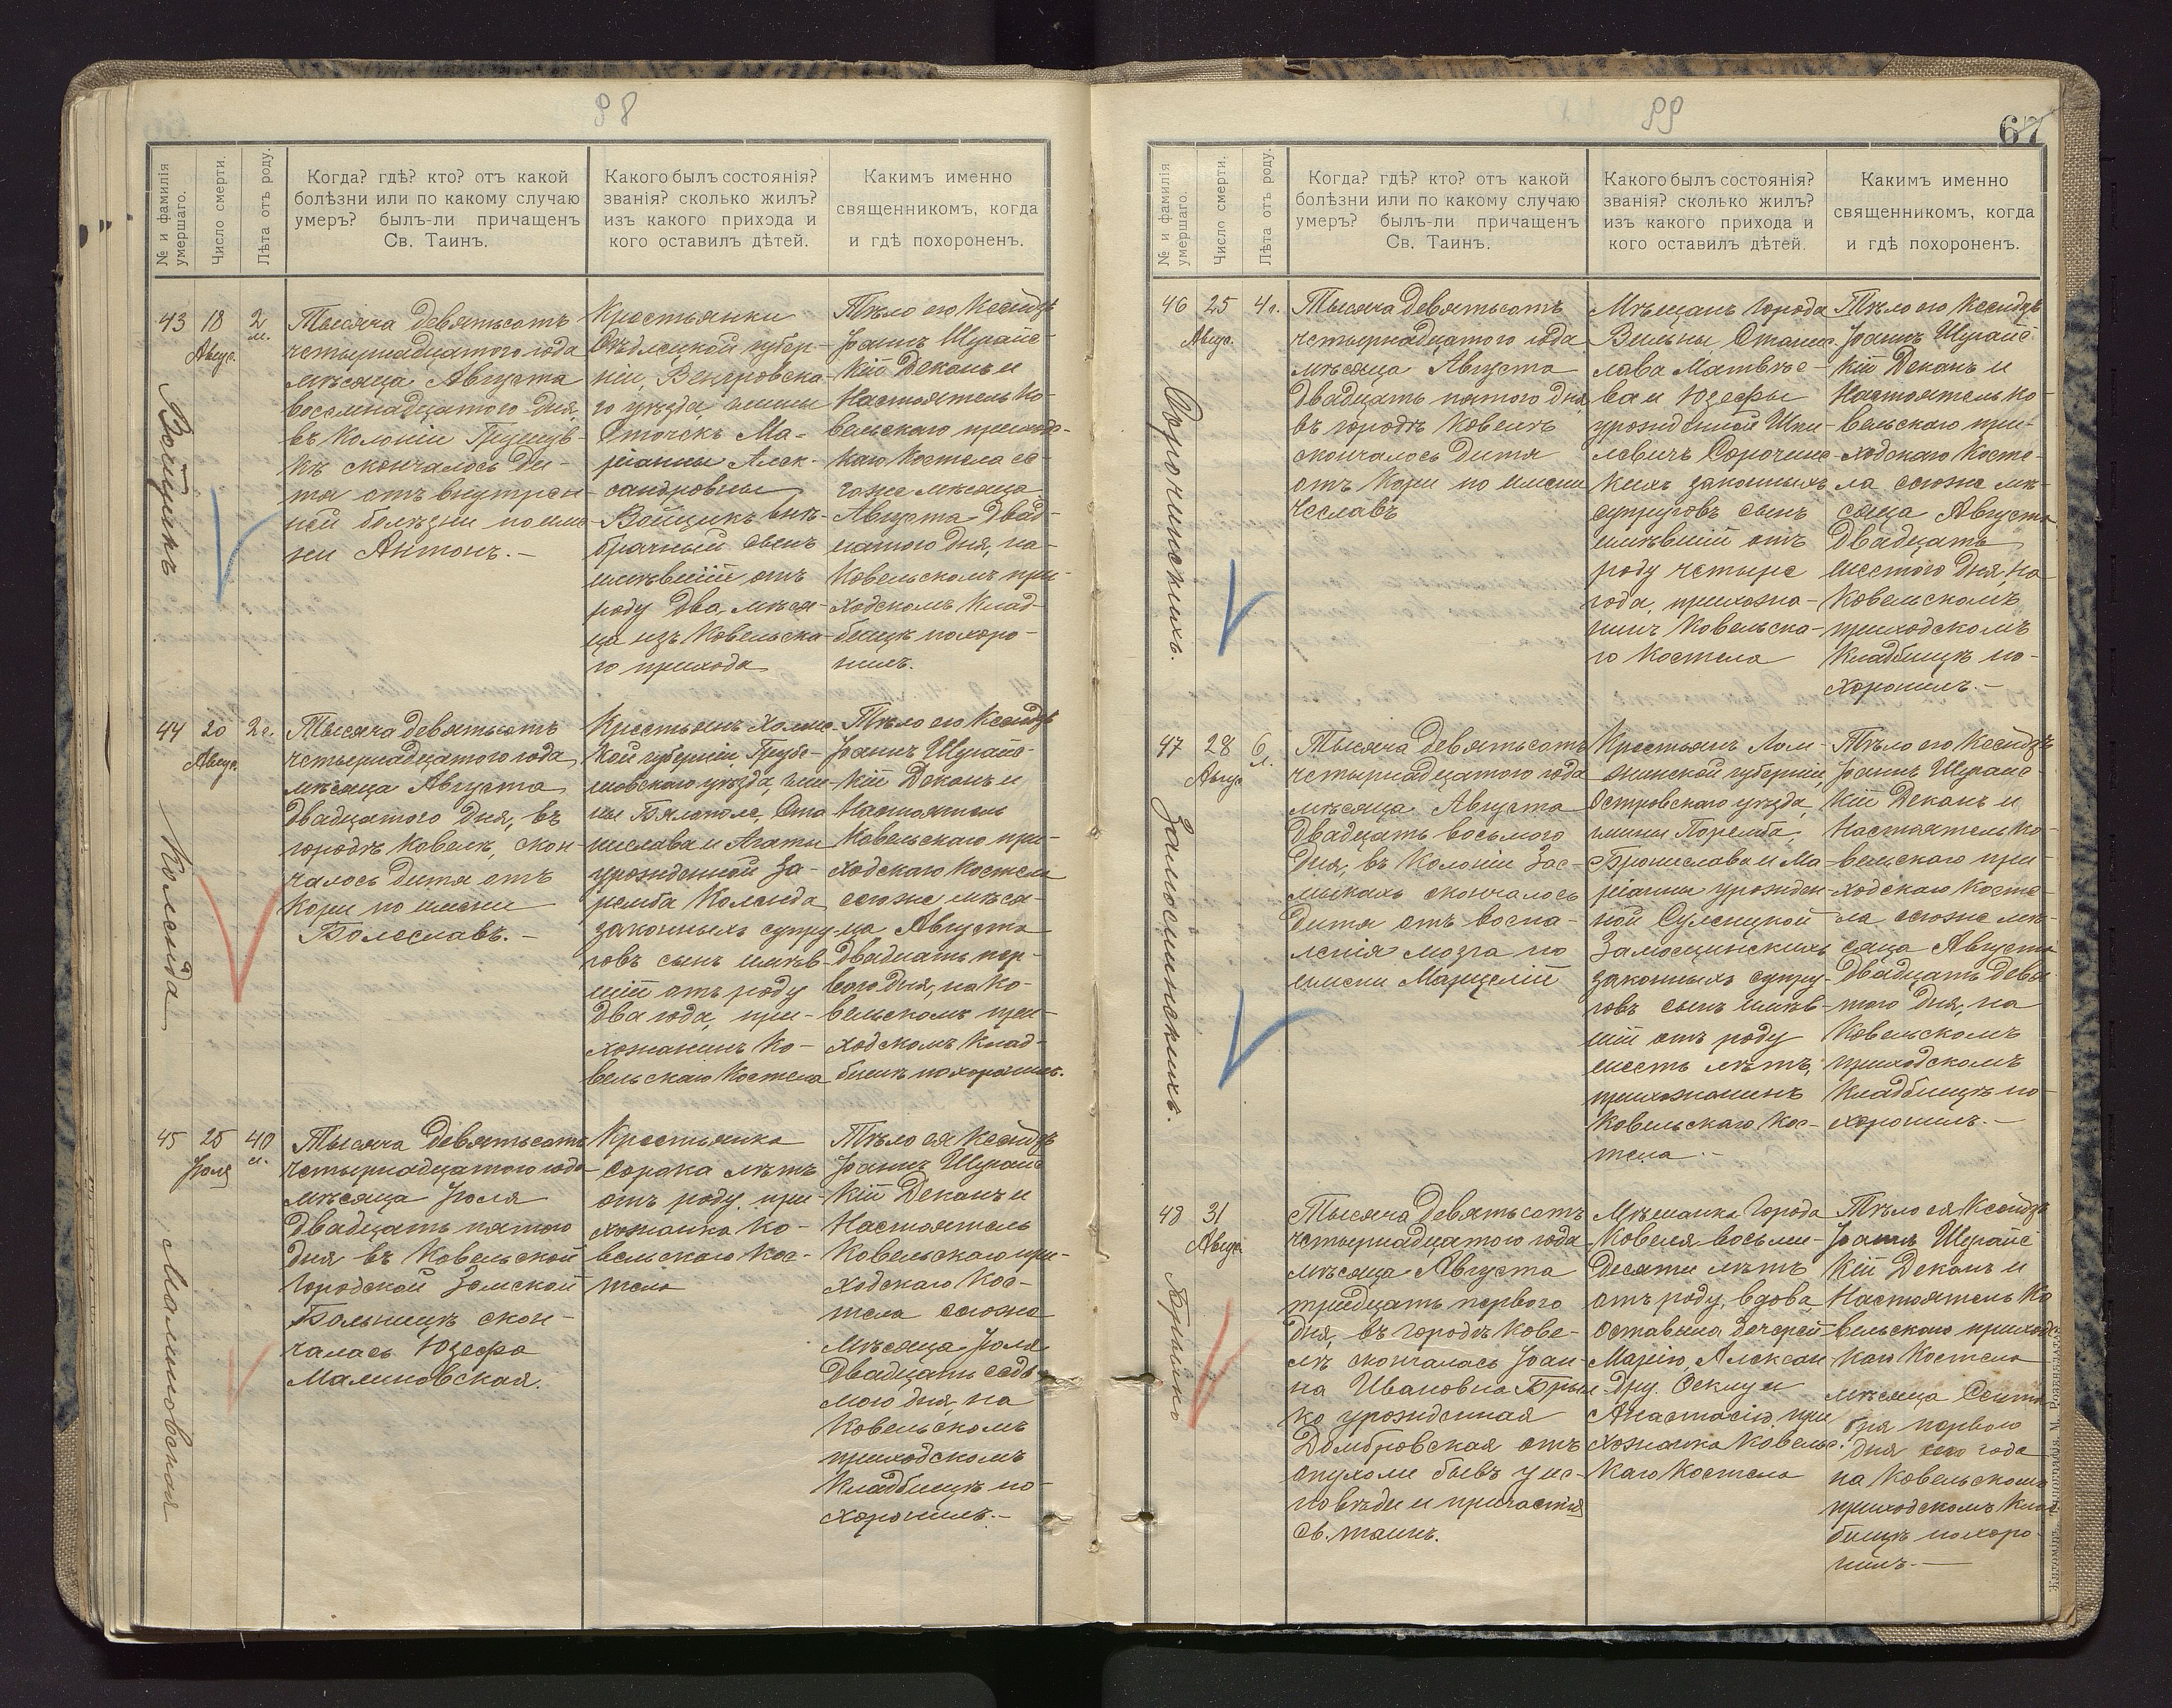 88
№ и фамилія умершаго.
Число смерти.
Лѣта отъ роду.
Когда? гдѣ? кто? отъ какой
болѣзни или по какому случаю
умеръ? былъ-ли причащенъ
Св. Таинъ.
Какого былъ состоянія?
званія? сколько жилъ?
изъ какого прихода и
кого оставилъ дѣтей.
Какимъ именно
священникомъ, когда
и гдѣ похороненъ.
43
Войцикъ
18
Авгус.
2
м.
Тысяча девятьсотъ
четырнадцатого года
мѣсяца Августа
восемнадцатого дня,
въ Колоніи
скончалось ди-
тя отъ внутрен-
ней болѣзни по име-
ни Антонъ.-
Крестьянки
Сѣдлецкой губер-
ніи, Венгровска-
го уѣзда, гмины
Сточекъ Ма-
ріанны Алек-
сандровны
Войцикъ внѣ-
брачный сынъ
имѣвшій отъ
роду два мѣся-
ца изъ Ковельска-
го прихода
Тѣло его Ксендзъ
Іоаннъ Шурайс-
кій Деканъ и
Настоятель Ко-
вельскаго приход-
каго Костела се-
гоже мѣсяца
Августа двад-
цатого дня, на
Ковельскомъ при-
ходскомъ Клад-
бищѣ похоро-
нилъ.
44
Коленда
20
Авгус.
2 г.
Тысяча девятьсотъ
четырнадцатого года
мѣсяца Августа
двадцатого дня, въ
городѣ Ковелѣ, скон-
чалось дитя отъ
Кори по имени
Болеславъ.-
Крестьянъ Холмс-
кой губерніи, Грубе-
шовскаго уѣзда, гми-
ны Бялополе, Ста
нислава и Агаты
урожденной За-
ремба Коленда
законныхъ супру-
говъ сынъ имѣв-
шій отъ роду
два года, при-
хожанинъ Ко-
вельскаго Костела
Тѣло его Ксендзъ
Іоаннъ Шурайс-
кій Деканъ и
Настоятель
Ковельскаго при-
ходскаго Костела
сегоже мѣся-
ца Августа
двадцать пер-
вого дня, на Ко-
вельскомъ при-
ходскомъ Клад-
бищѣ похоронилъ.
45
Малиновская
25
Іюля
40
л.
Тысяча девятьсотъ
четырнадцатого года
мѣсяца Іюля
двадцать пятого
дня въ Ковельской
Городской Земской
Больницѣ скон-
чалась Юзефа
Малиновская.
Крестьянка
сорока лѣтъ
отъ роду при-
хожанка Ко-
вельскаго Кос-
тела
Тѣло ея Ксендзъ
Іоаннъ Шурайс
кій Деканъ и
Настоятель
Ковельскаго при-
ходскаго Кос-
тела сегоже
мѣсяца Іюля
двадцать седь-
мого дня, на
Ковельскомъ
приходскомъ
Кладбищѣ по-
хоронилъ.-
99
67
№ и фамилія умершаго.
Число смерти.
Лѣта отъ роду.
Когда? гдѣ? кто? отъ какой
болѣзни или по какому случаю
умеръ? былъ-ли причащенъ
Св. Таинъ.
Какого былъ состоянія?
званія? сколько жилъ?
изъ какого прихода и
кого оставилъ дѣтей.
Какимъ именно
священникомъ, когда
и гдѣ похороненъ.
46
Сорочинскихъ.
25
Авгус.
4 г.
Тысяча девятьсотъ
четырнадцатого года
мѣсяца Августа
двадцать пятого дня
въ городѣ Ковелѣ
скончалось дитя
отъ Кори по имени
Чеславъ
Мѣщанъ Города
Вильны, Станис-
лава Матвѣе-
ва и Юзефы
урожденной
Сорочинс-
кихъ законныхъ
супруговъ сынъ
имѣвшій отъ
роду четыре
года, прихожа-
нинъ Ковельска-
го Костела
Тѣло его Ксендзъ
Іоаннъ Шурайс
кій Деканъ и
Настоятель Ко-
вельскаго при-
ходскаго Косте-
ла сегоже мѣ-
сяца Августа
двадцать
шестого дня, на
Ковельскомъ
приходскомъ
Кладбищѣ по-
хоронилъ.-
47
Замосцинскихъ.
28
Авгус
6
л.
Тысяча девятьсотъ
четырнадцатого года
мѣсяца Августа
двадцать восьмого
дня, въ Колоніи Зас-
мыкахъ скончалось
дитя отъ воспа-
ленія мозга по
имени Марцелій
Крестьянъ Лом-
жинской губерніи,
Островскаго уѣзда,
гмины Поремба,
Бронислава и Ма-
ріанны урожден-
ной Сулецкой
Замосцинскихъ
законныхъ супру-
говъ сынъ имѣв-
шій отъ роду
шесть лѣтъ,
прихожанинъ
Ковельскаго Кос-
тела.-
Тѣло его Ксендзъ
Іоаннъ Шурайс-
кій Деканъ и
Настоятель Ко-
вельскаго при-
ходскаго Косте-
ла сегоже мѣ-
сяца Августа
двадцать девя-
того дня, на
Ковельскомъ
приходскомъ
Кладбищѣ по-
хоронилъ.-
48
31
Авгус.
Тысяча девятьсотъ
четырнадцатого года
мѣсяца Августа
тридцать первого
дня, въ городѣ Кове-
лѣ скончалась Іоан-
на Ивановна
ко урожденная
Домбровская отъ
опухоли бывъ у ис-
повѣди и причастія
Св. таинъ.
Мѣщанка Города
Ковеля восьми-
десяти лѣтъ
отъ роду, вдова
оставила дочерей
Марію, Алексан
дру, Феклу и
Анастасію, при
хожанка Ковельс-
каго Костела
Тѣло ея Ксендзъ
Іоаннъ Шурайс
кій Деканъ и
Настоятель Ко
вельскаго приходс
каго Костела
мѣсяца Сентя
бря первого
дня сего года
на Ковельскомъ
приходскомъ Клад
бищѣ похоро-
нилъ.-
Житомиръ, Типографія, М. Ройенблата.